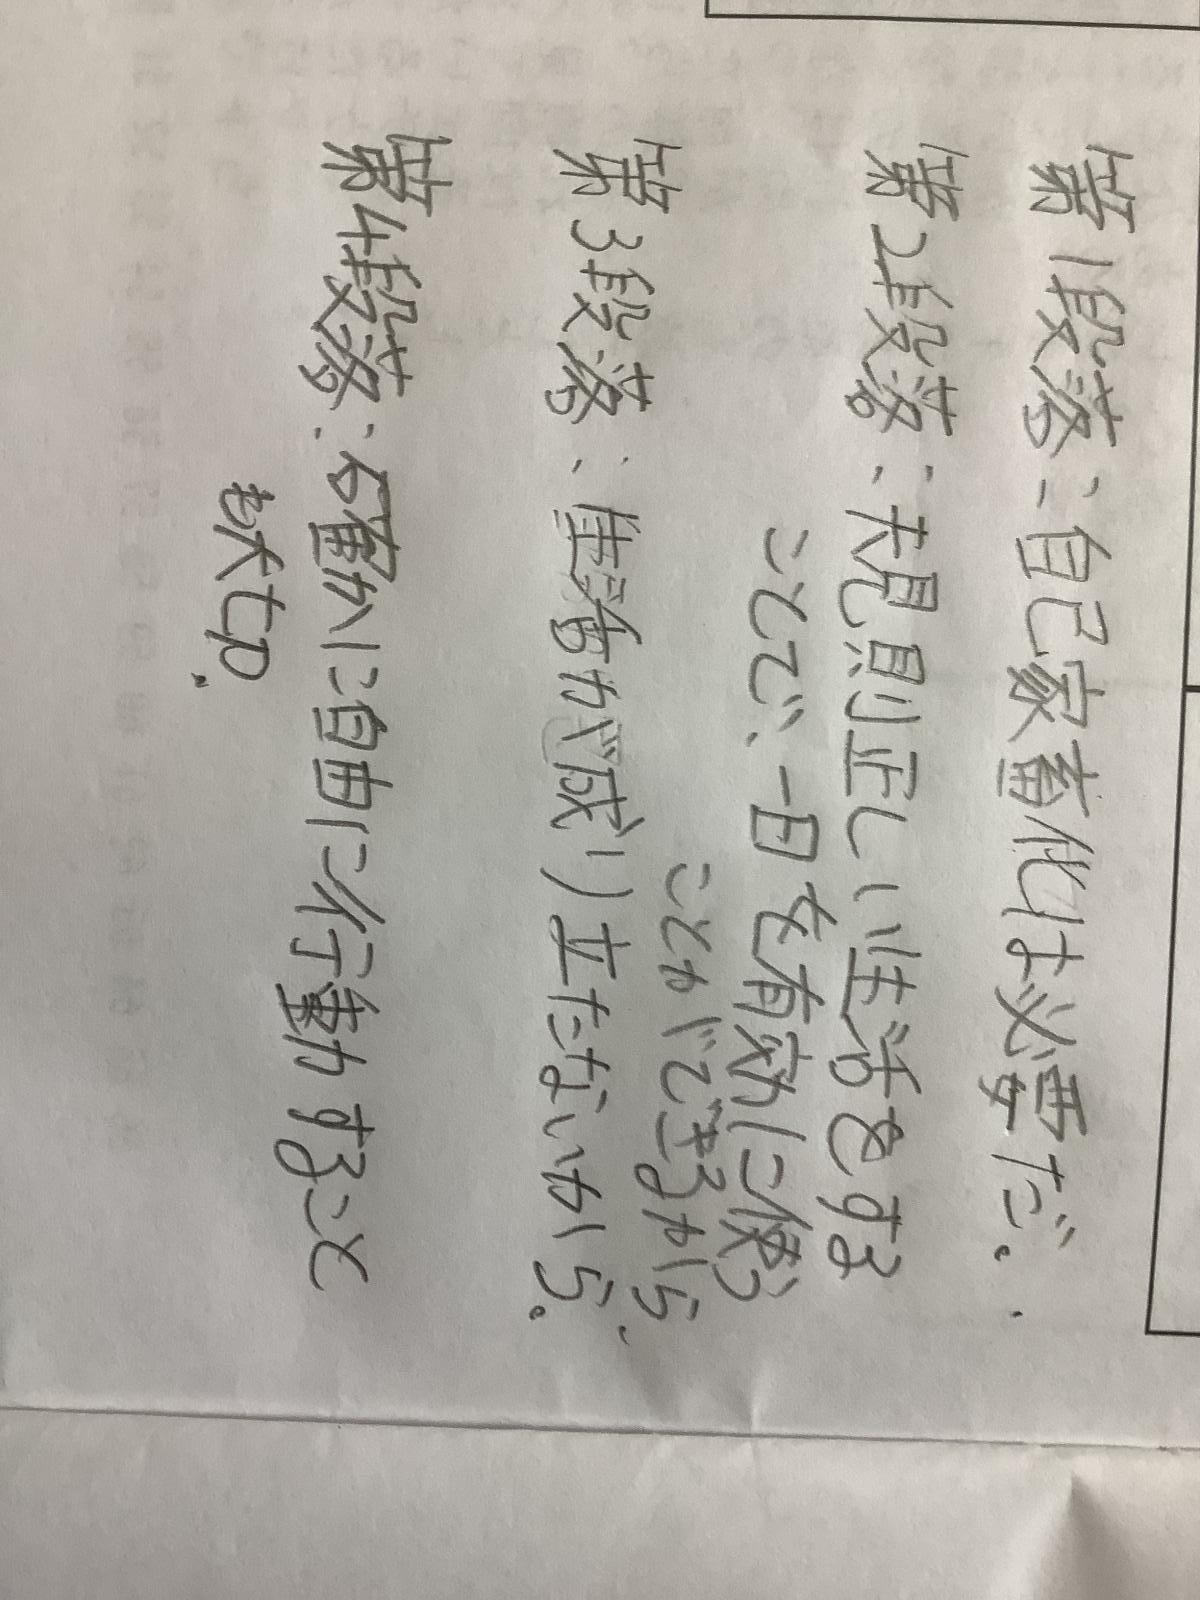 第1段落：自己家畜化は必要だ。
第2段落：規則正しい生活をする
ことで、一日を有効に使う
ことができるから、
第3段落：生活が成り立たないから。
第4段落：確かに自由に行動すること
も大切。